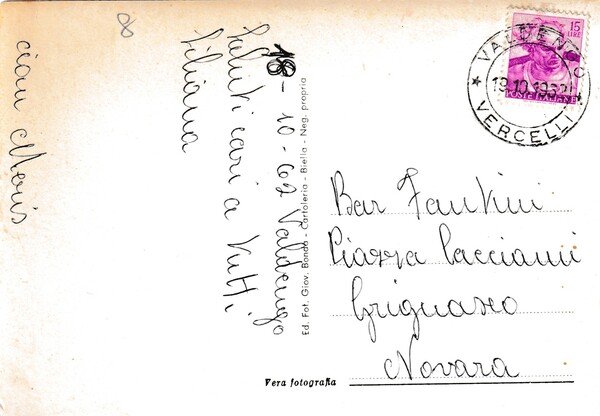 8
18-10-62 Valdengo
Saluti cari a tutti
Liliana
ciau Meris
Ed. Fot. Giov. Bonda - Cartoleria - Biella - Neg. propria
Vera fotografia
15
LIRE
POSTE ITALIANE
VALDENGO
19.10.1962
* VERCELLI *
Bar Fantini
Piazza Cacciami
Grignasco
Novara